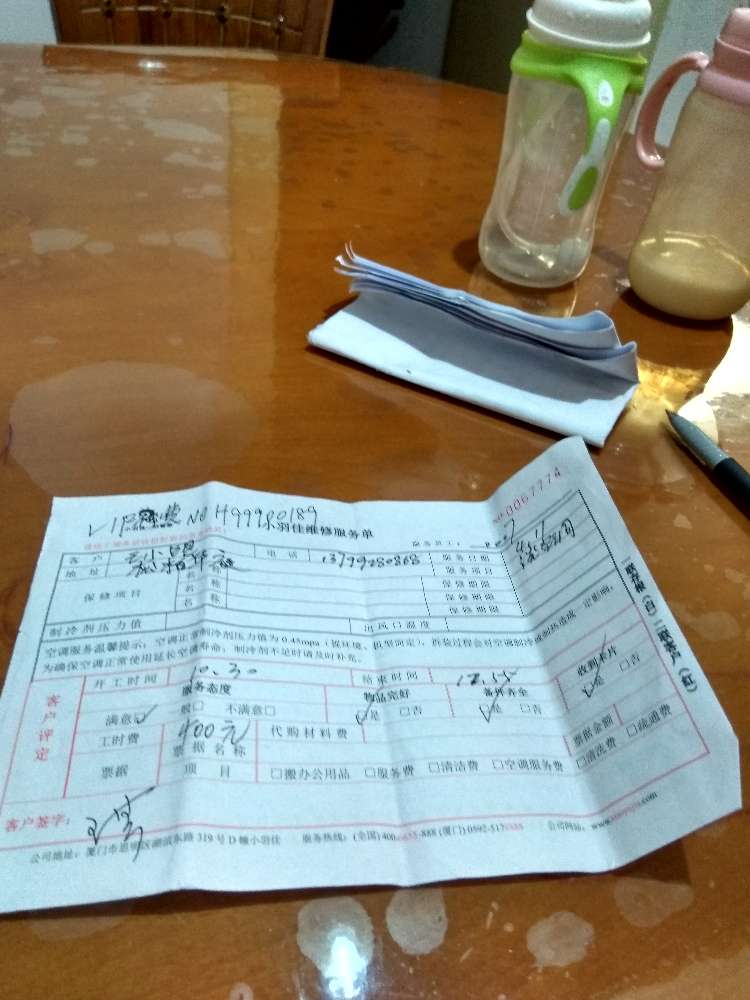 VIP No H99980189
羽佳维修服务单
No 0067774
服务员工:
客户 电话 13799280868 服务日期
地址 名称 服务项目
保修项目 名称 保修期限
名称 保修期限
保修期限
制冷剂压力值 出风口温度
空调服务温馨提示:空调正常制冷剂压力值为0.45mpa(视环境、机型而定),拆装过程会对空调制冷或制热造成一定影响,
为确保空调正常使用延长空调寿命,制冷剂不足时请及时补充。
客户评定
开工时间 10.30 结束时间 12.55 收到卡片
服务态度 物品完好 备件齐全 ☑是 □否
满意☑ 般□ 不满意□ ☑是 □否 ☑是 □否
工时费 400元 代购材料费 票据金额
票据名称
票据 项目 □搬办公用品 □服务费 □清洁费 □空调服务费 □清洗费 □疏通费
客户签字:
公司地址:厦门市思明区湖滨东路319号D幢小羽佳 服务热线:(全国)400 -888 (厦门)0592-517 公司网站:www. .com